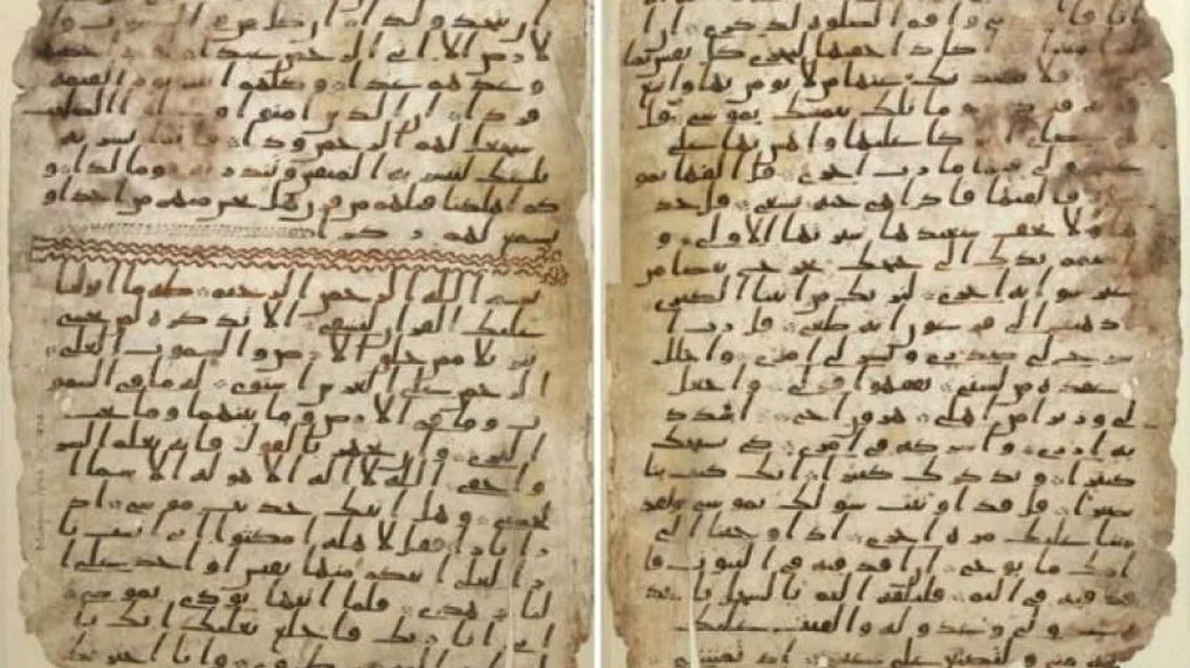 ان يتخذ ولدا ان كل من في السموت و
لارض الا اتى الرحمن عبدا
وعدهم عدا وكلهم اتيه يوم القيمة
فردا ان الذين امنوا و الصلحت
سيجعل لهم الرحمن ودا فانما يسرنه
بلسنك لتبشر به المتقين وتنذر به قوما لدا و
كم اهلكنا قبلهم من قرن هل تحس منهم من احد او
تسمع لهم ركزا
بسم الله الرحمن الرحيم طه ما انزلنا
عليك القران لتشقى الا تذكرة لمن يخشى
تنزيلا ممن خلق الارض والسموت العلى
الرحمن على العرش استوى له ما في السمو
ت وما في الارض وما بينهما وما تحت
الثرى وان تجهر بالقول فانه يعلم السر
واخفى الله لا اله الا هو له الاسما ا
لحسنى وهل اتيك حديث موسى اذ
را نارا فقل لاهله امكثوا اني انست نا
را لعلي اتيكم منها بقبس او اجد على ا
لنار هدى فلما اتيها نودي يموسى
اني انا ربك فاخلع نعليك انك با
طوى وانا اختر
انا فا واقم الصلوة لذكري ان ا
اكاد اخفيها لتجزى كل نفس بما
فلا يصدنك عنها من لا يومن بها واتبع
وما تلك بيمينك يموسى قا
عليها واهش بها على
ولي فيها مارب اخرى قل القها يمو
فالقيها فاذا هي حية تسعى قل خذ
ها ولا تخف سنعيدها سيرتها الاولى و
اضمم يدك الى جنحك تخرج بيضا من
غير سو اية اخرى لنريك من ايتنا الكبرى
اذهب الى فرعون انه طغى قل رب ا
شرح لي صدري ويسر لي امري واحلل
عقدة من لسني يفقهوا قولي واجعل
لي وزيرا من اهلي هرون اخي اشدد
به ازري واشركه في امري كي نسبحك
كثيرا ونذكرك كثيرا انك كنت بنا
بصيرا قل قد اوتيت سولك يموسى ولقد
مننا عليك مرة اخرى اذ اوحينا الى
امك ما يوحى ان اقذفيه في التبوت فا
قذفيه في اليم فليلقه اليم بالسحل ياخذه
عدو لي وعدو له والقيت عليك
مني ولتصنع على عيني اذ تمشي